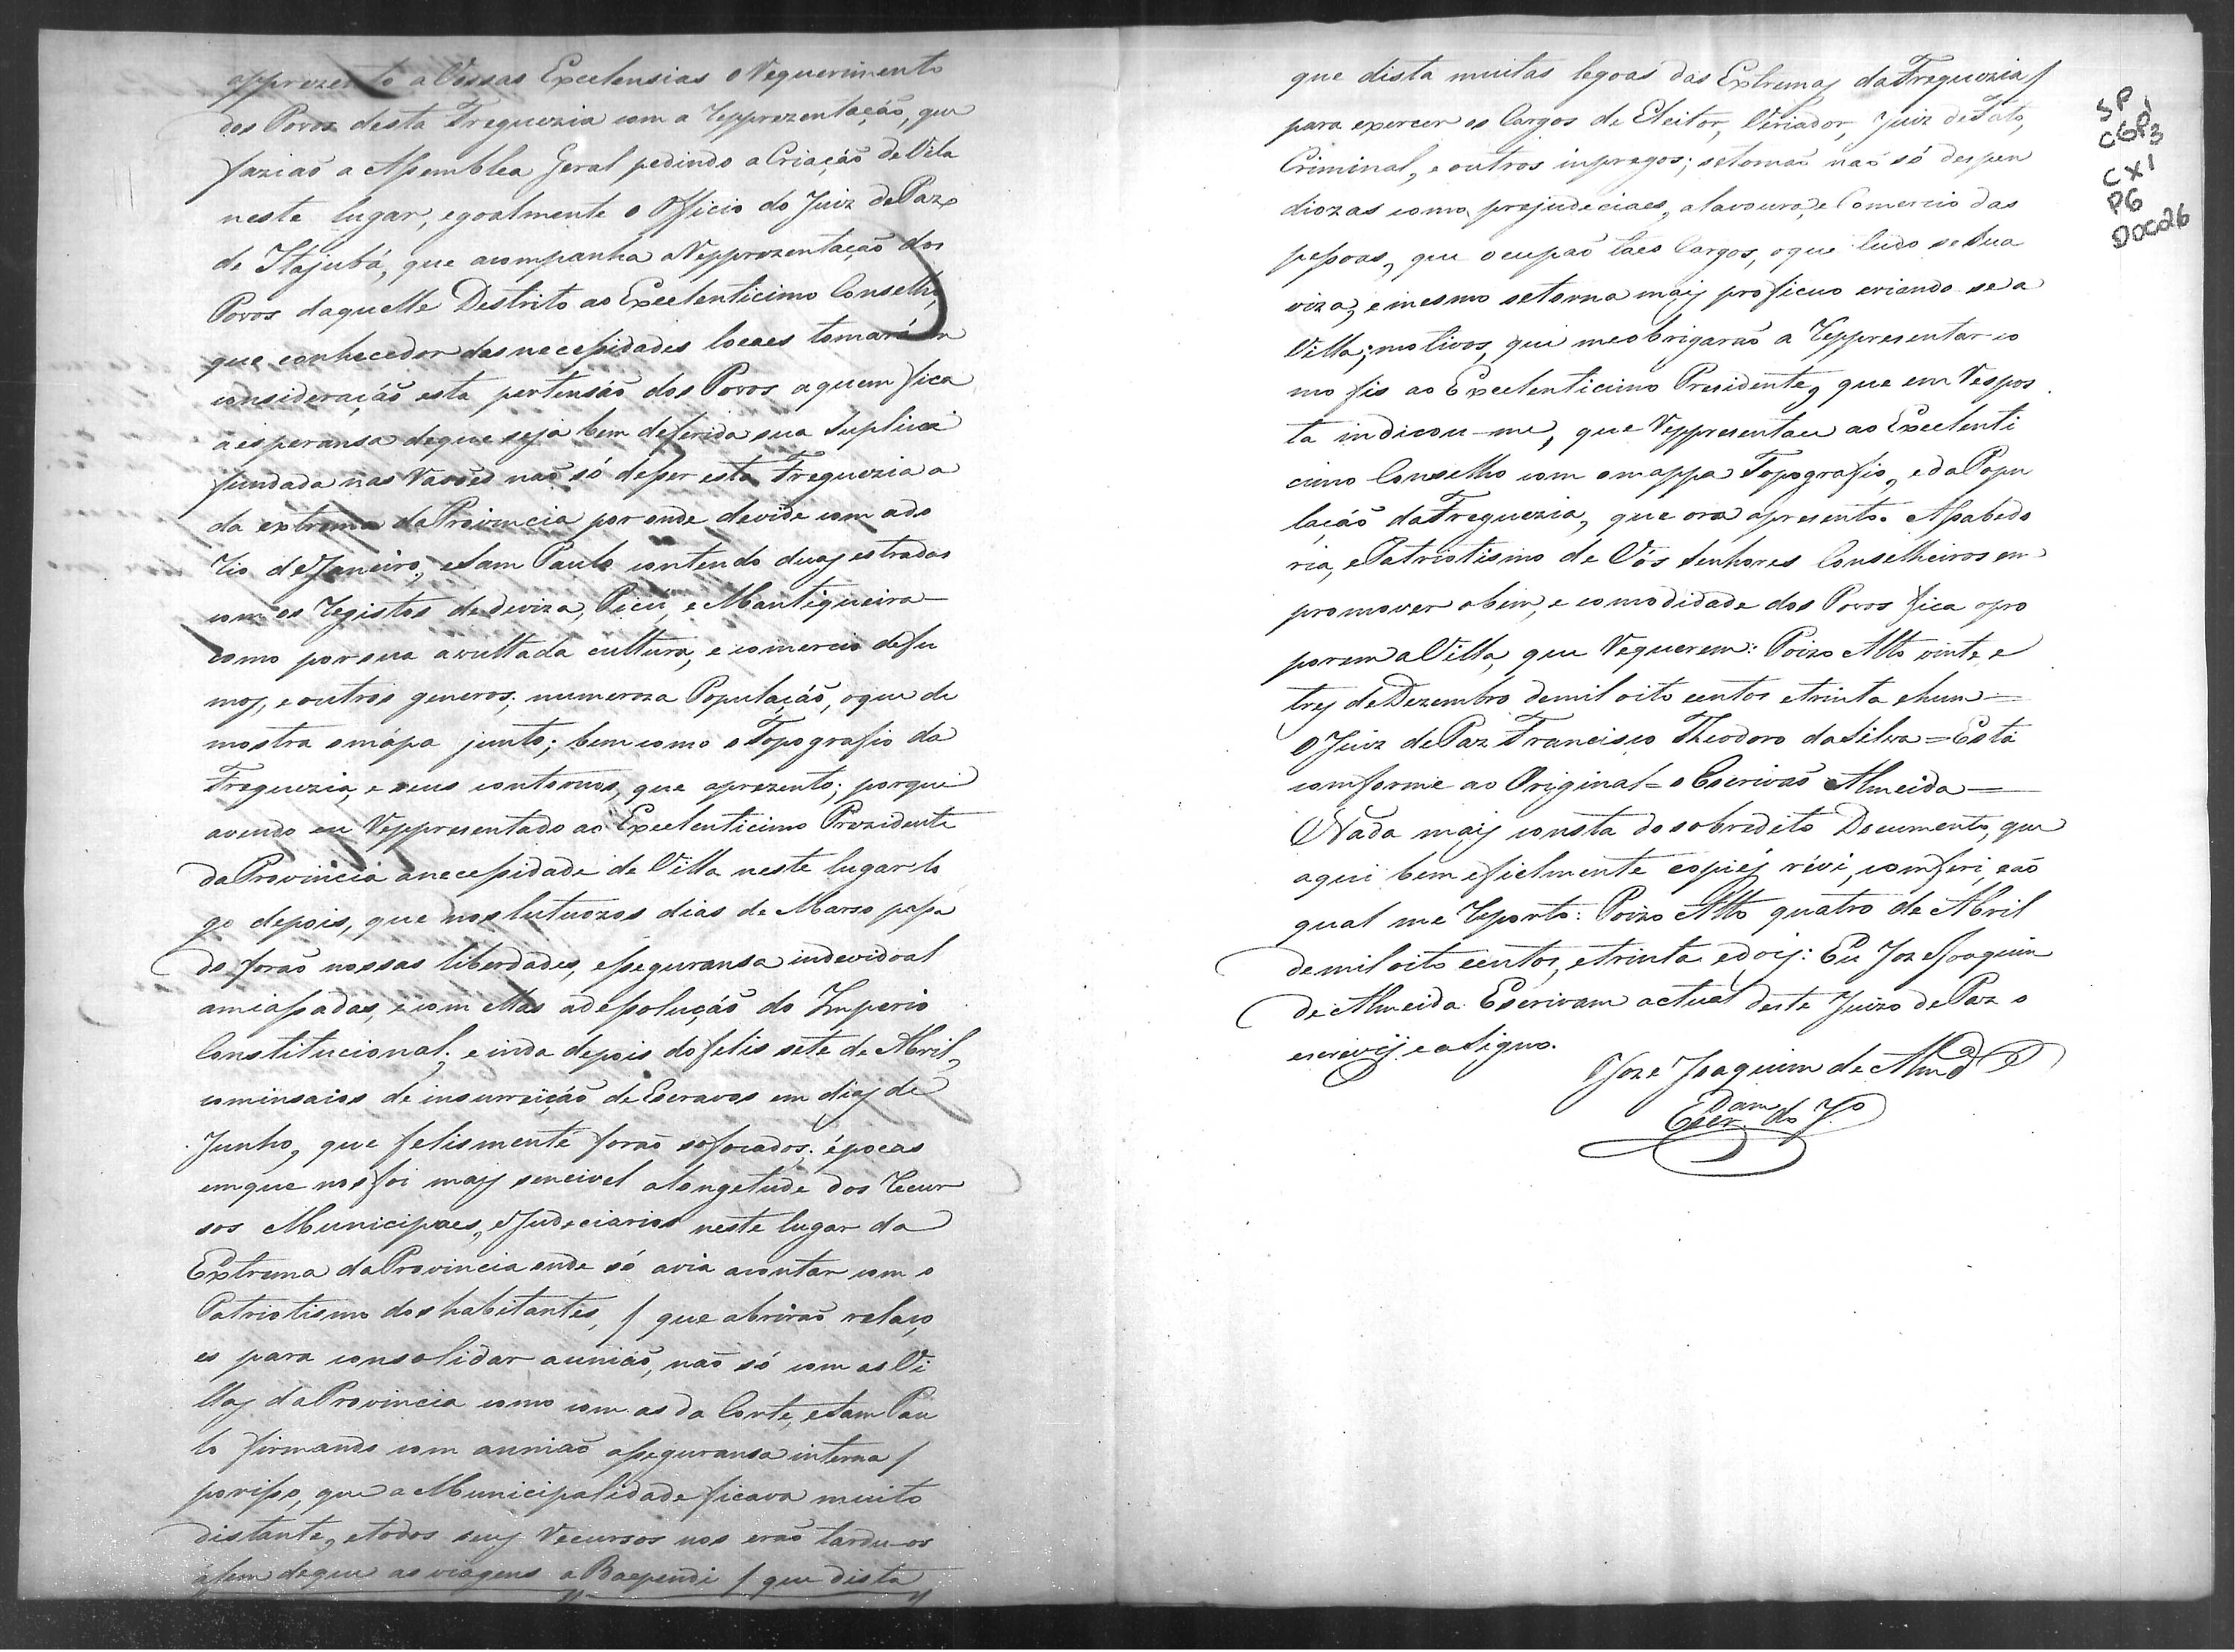 apprezento a Vossas Excelensias o Requerimento
dos Povos desta Freguezia com a Repprezentação, que
fazião a Assemblea Geral pedindo a Criação de Vila
neste lugar, egoalmente o Officio do Juiz de Paz
de Itajubá, que acompanha a Repprezentação dos
Povos daquelle Destrito ao Excelenticimo Conselho,
que conhecedor das necessidades locaes tomará em
consideração esta pertensão dos Povos a quem fica
a esperansa de que seja bem deferida sua Suplica
fundada nas Rasoes não só de ser esta Freguezia a
da extrema da Provincia por onde devide com a do
Rio de Janeiro, e Sam Paulo contendo duas estradas
com os Registos de deviza, Picú, e Mantiqueira
como por sua avultada cultura, e comercio de fu
mos, e outros generos; numeroza População, o que de
mostra o mápa junto; bem como o Topografio da
Freguezia, e seus contornos, que aprezento; porque
avendo eu Reppresentado ao Excelenticimo Prezidente
da Provincia a necessidade de Villa neste lugar lo
go depois, que nos lutuozos dias de Marso passa
do forão nossas liberdades, e seguransa indevidoal
amiassadas, e com ellas a desolução do Imperio
Constitucional; e inda depois do felis sete de Abril,
com insaios de insurreição de Escravos em dias de
Junho, que felismente forão sofocados; épocas
em que nos foi mais sencivel a longetude dos Recur
sos Municipaes, e Judeciarios neste lugar da
Extrema da Provincia onde só avia a contar com o
Patriotismo dos habitantes, / que abrirão relaço,
es para consolidar a união, não só com as Vi
llas da Provincia como com as da Corte, e Sam Pau
lo firmando com a união a seguransa interna /
por isso, que a Municipalidade ficava muito
distante, e todos seus Recursos nos erão tardu-os
alem de que as viagens a Baependi / que dista
que dista muitas legoas das Extremas da Freguezia /
para exercer os Cargos de Eleitor, Veriador, Juiz de Fato,
Criminal, e outros inpregos; se tornão não só despen
diozas como prejudeciaes, a lavoura, e Comercio das
pessoas, que ocupão taes Cargos, o que tudo se sua
viza, e mesmo se torna mais proficuo criando se a
Villa; motivos, que me obrigarão a Reppresentar co
mo fis ao Excelenticimo Presidente, que em Respos
ta indicou-me, que Reppresentace ao Excelenti
cimo Conselho com o mappa Topografio, e da Popu
lação da Freguezia, que ora apresento. A sabedo
ria, e Patriotismo de Vós Senhores Conselheiros em
promover o bem, e comodidade dos Povos fica o pro
porem a Villa, que Requerem: Poizo Alto vinte e
tres de Dezembro de mil oito centos e trinta e hum =
O Juiz de Paz Francisco Theodoro da Silva = Está
comforme ao Original = o Escrivão Almeida =
Nada mais consta do sobredito Documento, que
aqui bem e fielmente copiej révi, comferi, e ao
qual me Reporto: Poizo Alto quatro de Abril
de mil oito centos, e trinta e dois: Eu Joze Joaquim
de Almeida Escrivam actual deste Juizo de Paz o
escrevij e a Signo.
Joze Joaquim de Almda
Escr.dam do J.o
SP
CGP3
CX1
P6
DOC26